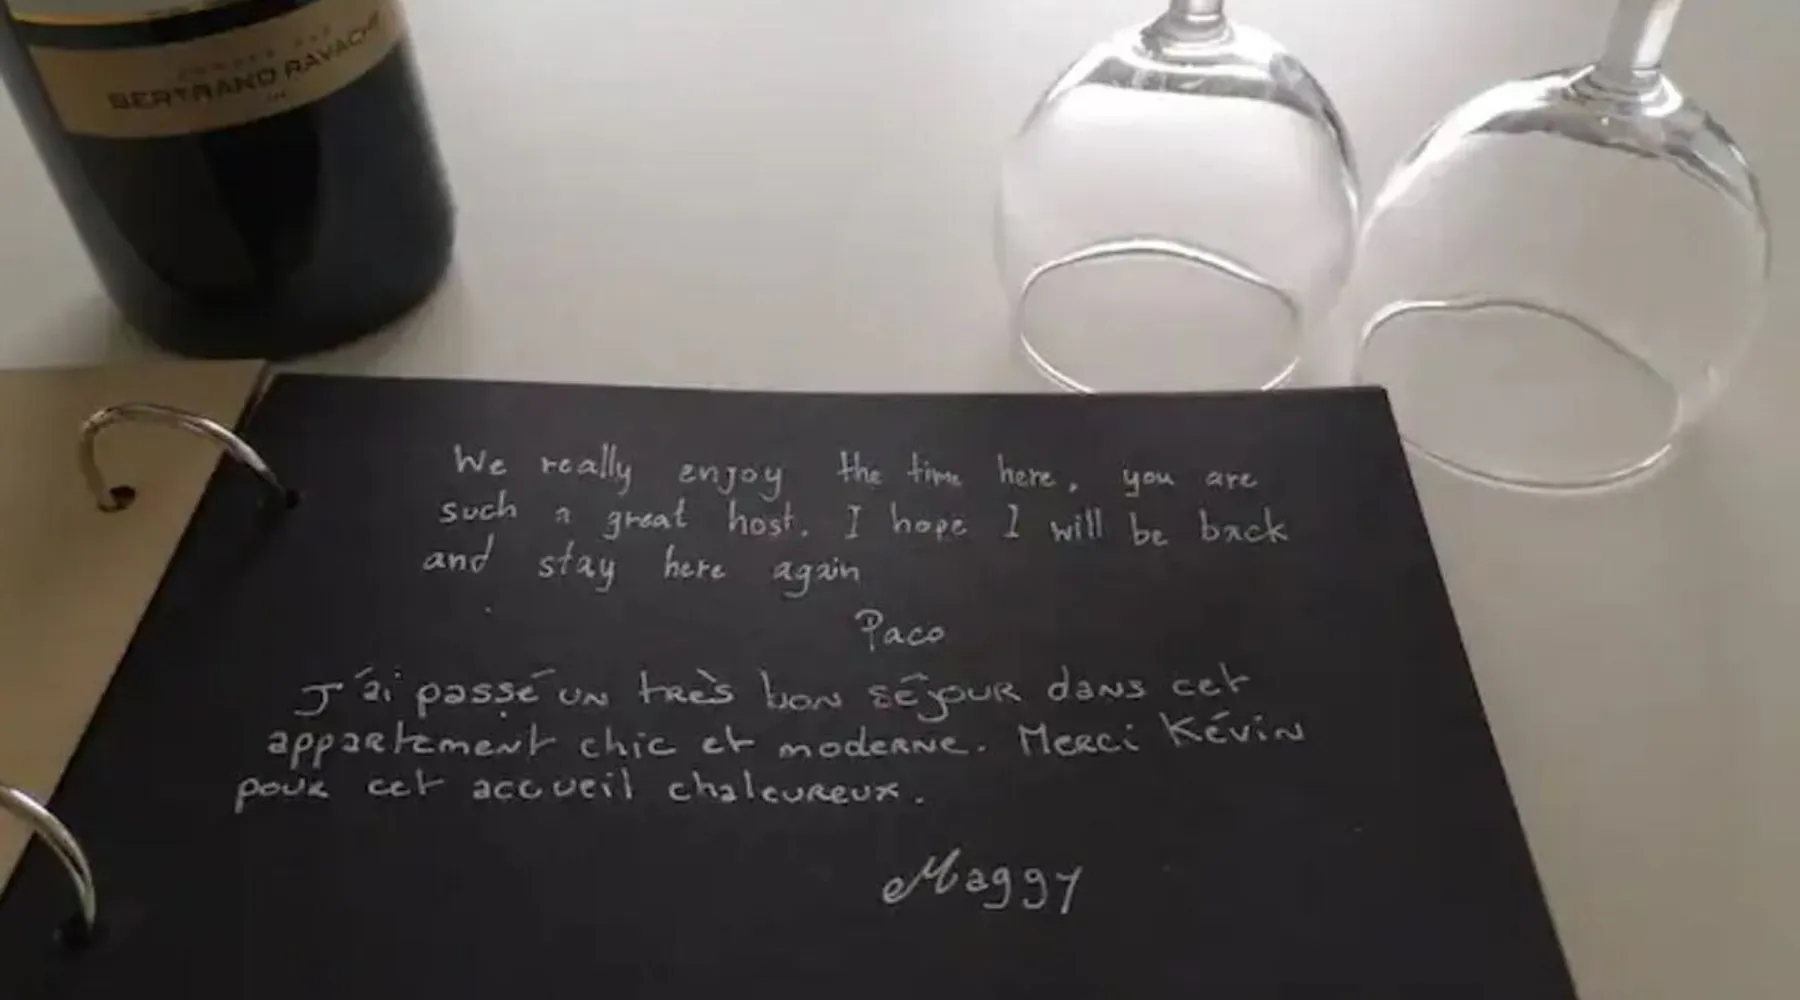 BERTRAND RAVACHE
We really enjoy the time here, you are
such a great host. I hope I will be back
and stay here again
Paco
J'ai passé un très bon séjour dans cet
appartement chic et moderne. Merci Kévin
pour cet accueil chaleureux.
Maggy